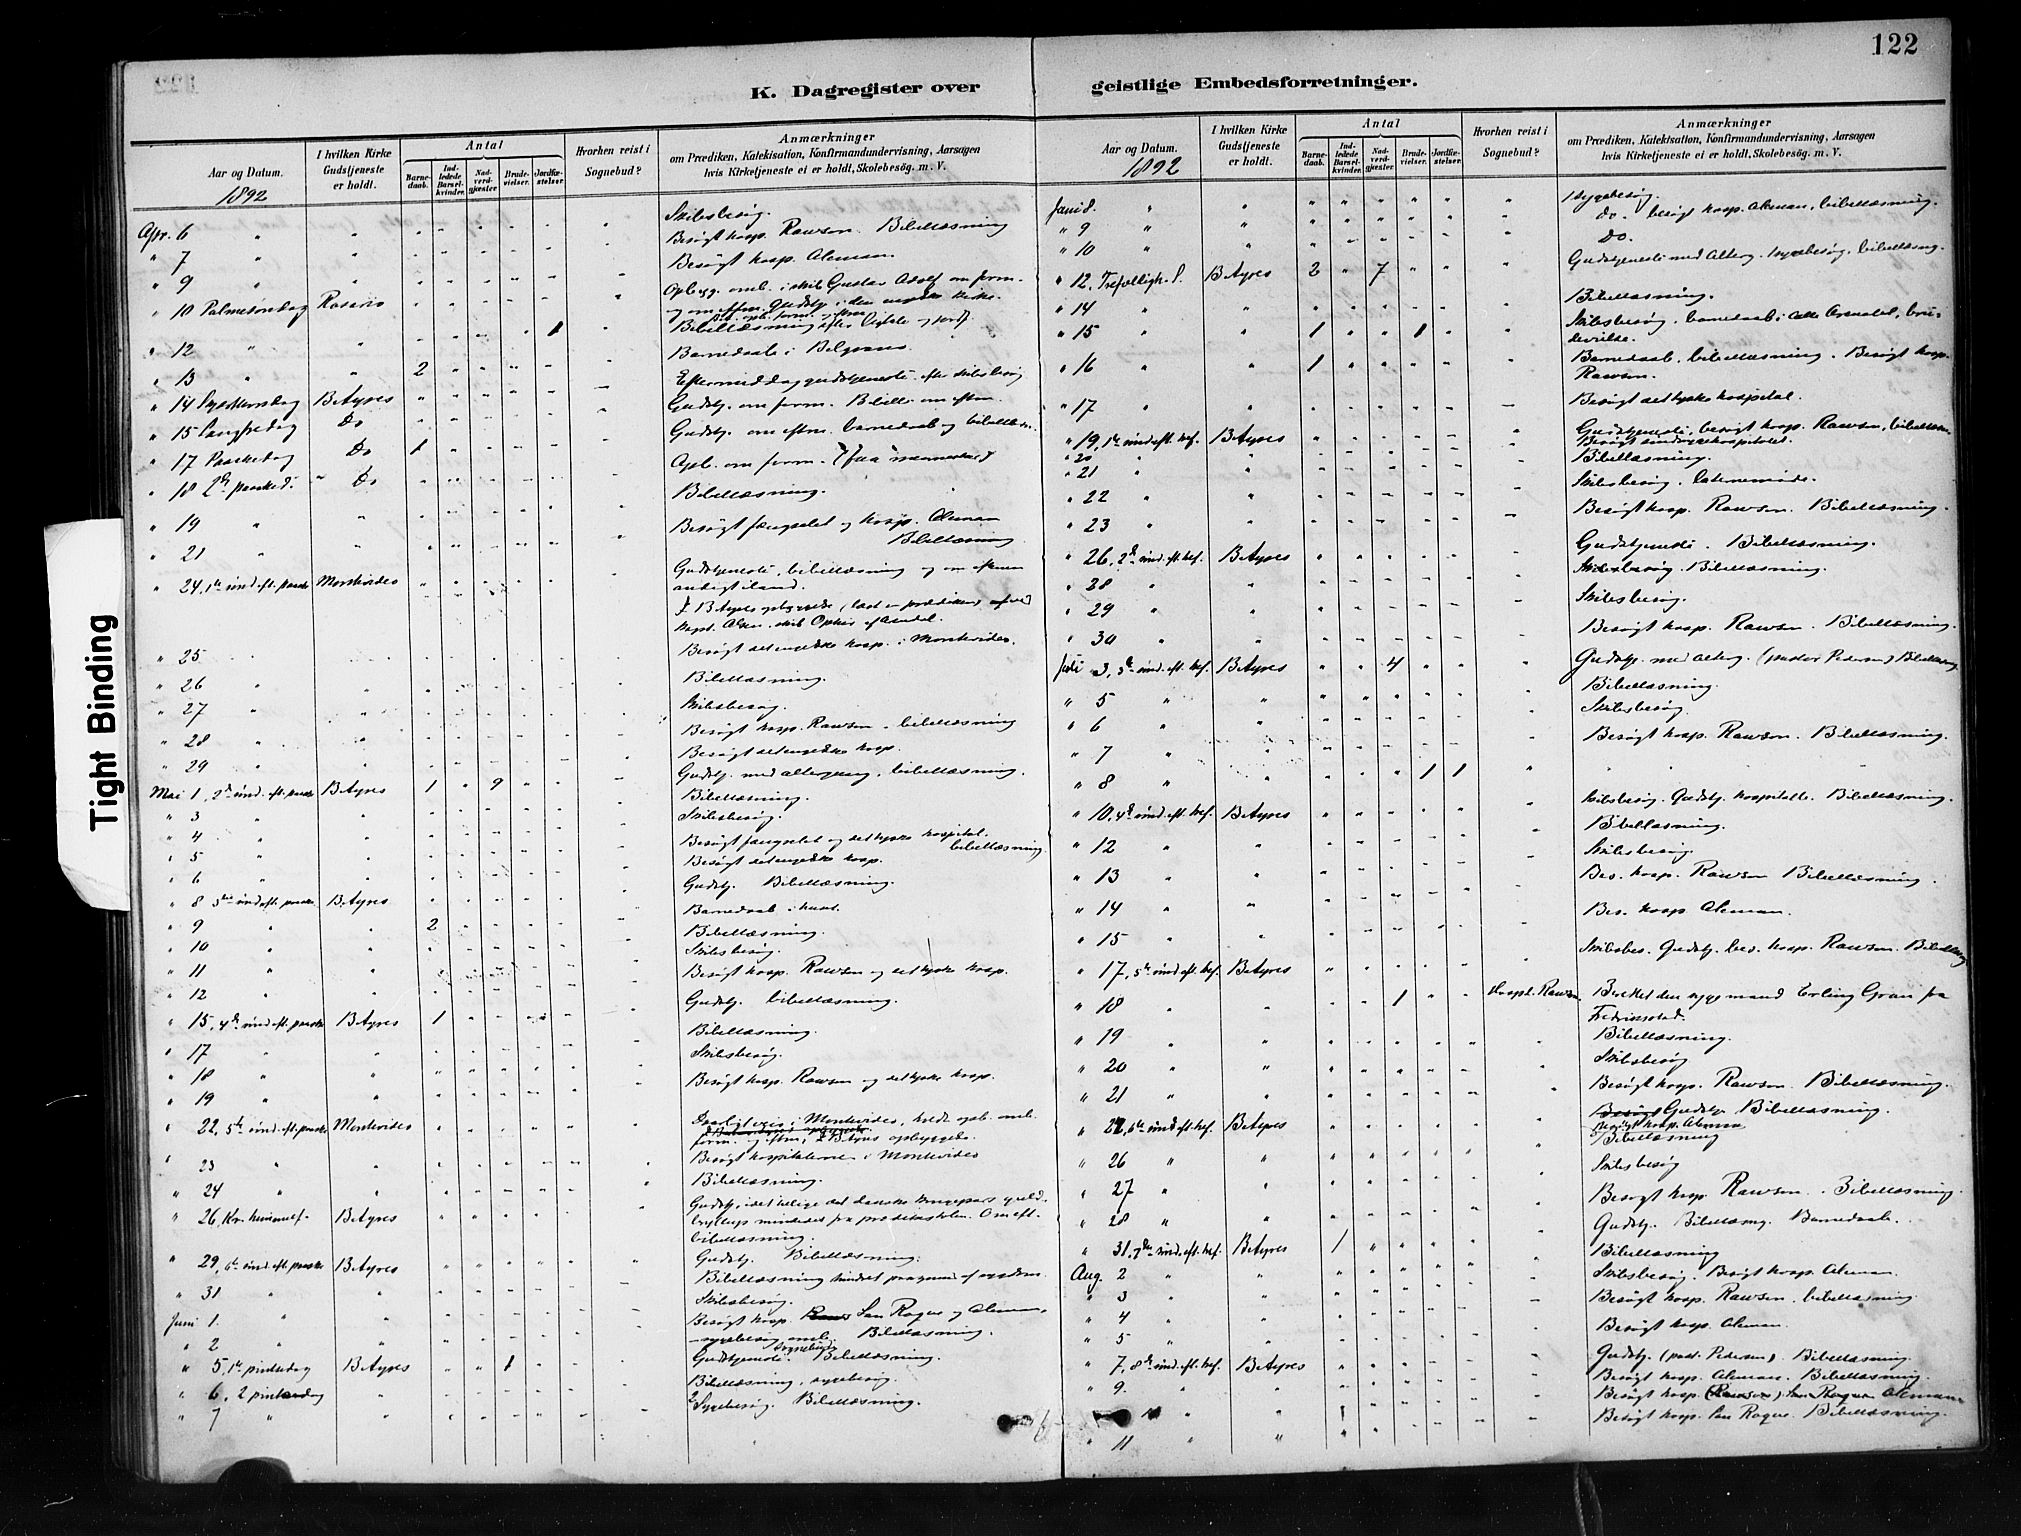 122
K. Dagregister over geistlige Embedsforretninger.
Tight Binding
Aar og Datum.
1892
I hvilken Kirke Gudstjeneste er holdt.
Antal
Barnedaab.
Indledede Barselkvinder.
Nadverdgjester
Brudevielser.
Jordfæstelser.
Hvorhen reist i Sognebud?
Anmærkninger
om Prædiken, Katekisation, Konfirmandundervisning, Aarsagen
hvis Kirketjeneste ei er holdt, Skolebesög. m. V.
Apr. 6 " " Skibsbesøg.
" 7 " " Besøgt hosp. Rawson. Bibellæsning
" 9 " " Besøgt hosp. Aleman.
" 10 Palmesøndag Rosario Opbygg. omb. i skib Gustav Adolf om form.
og om eftm. Gudstj. i den engelske kirke.
" 12 " " 1 Bibellæsning
" 13 " " 2 Barnedaab i Belgrano.
" 14 Skjærtorsdag B Ayres Eftermiddagsgudstjeneste efter skibsbesøg
" 15 Langfredag Do Gudstj. om form. Bibell. om eftm.
" 17 Paaskedag Do 1 Gudstj. om eftm. barnedaab og bibellæsn.
" 18 2den paasked. Do Opb. om form. (faa mennesker)
" 19 " " Bibellæsning.
" 21 " " Besøgt fængselet og hosp. Aleman
Bibellæsning
" 24, 1ste sønd. eft. paaske Montevideo Gudstjeneste, bibellæsning og om eftm.
andagt iland.
I B Ayres opbyggelse (læst en prædiken) af
kapt. Olsen, skib Ophir af Arendal.
" 25 " " Besøgt det engelske hosp. i Montevideo.
" 26 " " Bibellæsning.
" 27 " " Skibsbesøg.
" 28 " " Besøgt hosp. Rawson, bibellæsning
" 29 " " Besøgt det engelske hosp.
Mai 1, 2den sønd. eft. paaske B Ayres 1 " 9 Gudstj. med altergang, bibellæsning.
" 3 " " Bibellæsning.
" 4 " " Skibsbesøg.
" 5 " " Besøgt fængselet og det tydske hospital.
bibellæsning
" 6 " " Besøgt det engelske hosp.
" 8 3die sønd. eft. paaske B Ayres Gudstj. Bibellæsning.
" 9 " " 2 Barnedaab i huset.
" 10 " " Bibellæsning.
" 11 " " Skibsbesøg.
" 12 " " Besøgt hosp. Rawson og det tydske hosp.
" 15, 4de sønd. eft. paaske B Ayres 1 Gudstj. bibellæsning.
" 17 " " Bibellæsning.
" 18 " " Skibsbesøg.
" 19 " " Besøgt hosp. Rawson og det tydske hosp.
" 22, 5te sønd. eft. paaske Montevideo Daarligt veir i Montevideo, holdt opb. omb.
form. og eftm. I B Ayres opbyggelse.
" 23 " " Besøgt hospitalerne i Montevideo
" 24 " " Bibellæsning.
" 26, Kr. himmelf. B Ayres Gudstj., i det det danske kongepars guld-
bryllup mindedes fra prædikestolen. Om eft.
bibellæsning.
" 29, 6te sønd. eft. paaske B Ayres Gudstj. Bibellæsning.
" 31 " " Bibellæsning hindret paagrund af sygdom.
Juni 1. " " Skibsbesøg.
" 2 " " Besøgt hosp. San Roque og Aleman,
sygebesøg omb. Bibellæsning.
" 5, 1ste pinsedag B Ayres 1 Gudstjeneste. Sognebud. Bibellæsning.
" 6, 2 pinsedag " Bibellæsning, sygebesøg.
" 7 " " 2 Sygebesøg. Bibellæsning.
Aar og Datum.
1892
I hvilken Kirke Gudstjeneste er holdt.
Antal
Barnedaab.
Indledede Barselkvinder.
Nadverdgjester
Brudevielser.
Jordfæstelser.
Hvorhen reist i Sognebud?
Anmærkninger
om Prædiken, Katekisation, Konfirmandundervisning, Aarsagen
hvis Kirketjeneste ei er holdt, Skolebesög. m. V.
Juni 8. " " Sygebesøg.
" 9 " " Do. besøgt hosp. Aleman, bibellæsning.
" 10 " " Do.
" 12, Trefoldigh. S. B Ayres 2 " 7 Gudstjeneste med Alterg. sygebesøg, bibellæsng.
" 14 " " Bibellæsning.
" 15 " " 1 1 Skibsbesøg, barnedaab, bru-
devielse.
" 16 " " 1 Barnedaab, bibellæsning. Besøgt hosp.
Rawson.
" 17 " " Besøgt det tydske hospital.
" 19, 1ste sønd. eft. tref. B Ayres Gudstjeneste, besøgt hosp. Rawson, bibellæsn.
" 20
" 21 " " Bibellæsning.
" 22 " " Skibsbesøg.
" 23 " " Besøgt hosp. Rawson. Bibellæsning.
" 26, 2den sønd. eft. tref. B Ayres Gudstjeneste. Bibellæsning.
" 28 " " Skibsbesøg. Bibellæsning.
" 29 " " Skibsbesøg.
" 30 " " Besøgt hosp. Rawson. Bibellæsning.
Juli 3, 3die sønd. eft. tref. B Ayres 4 Gudstj. med alterg. (pastor Pedersen) Bibellæsng
" 5 " " Bibellæsning.
" 6 " " Skibsbesøg.
" 7 " " Besøgt hosp. Rawson. Bibellæsning.
" 8 " " 1 1
" 10, 4de sønd. eft. tref. B Ayres Skibsbesøg. Gudstj. hospitalb. Bibellæsning.
" 12 " " Bibellæsning.
" 13 " " Skibsbesøg.
" 14 " " Bes. hosp. Rawson Bibellæsning.
" 15 " " Bes. hosp. Aleman.
" 17, 5te sønd. eft. tref. B Ayres Skibsbes. Gudstj. bes. hosp. Rawson. Bibellæsng
" 18 " " 1 Hospt. Rawson. Berettet den syge mand Erling Gran fra
Fredriksstad.
" 19 " " Bibellæsning.
" 20 " " Skibsbesøg
" 21 " " Besøgt hosp. Rawson. Bibellæsning.
" 24, 6te sønd eft. tref. B Ayres Besøgt Gudstj. Bibellæsning.
Besøgt hosp. Aleman
" 26 " " Bibellæsning
" 27 " " Skibsbesøg
" 28 " " Besøgt hosp. Rawson. Bibellæsning.
" 31, 7de sønd. eft. tref. B Ayres 1 Gudstj. Bibellæsng. Barnedaab.
Aug. 2 " " Bibellæsning
" 3 " " Skibsbesøg. Besøgt hosp. Aleman.
" 4 " " Besøgt hosp. Rawson. bibellæsning
" 5 " " Besøgt hosp. Aleman.
" 7, 8de sønd. eft. tref. B Ayres Gudstj. (past. Pedersen). Bibellæsning.
" 9. " " Besøgt hosp. Aleman. Bibellæsning.
" 10 " " 1 Besøgt hosp. (Rawson) San Roque Aleman
" 11 " " Besøgt hosp. San Roque. Bibellæsning.